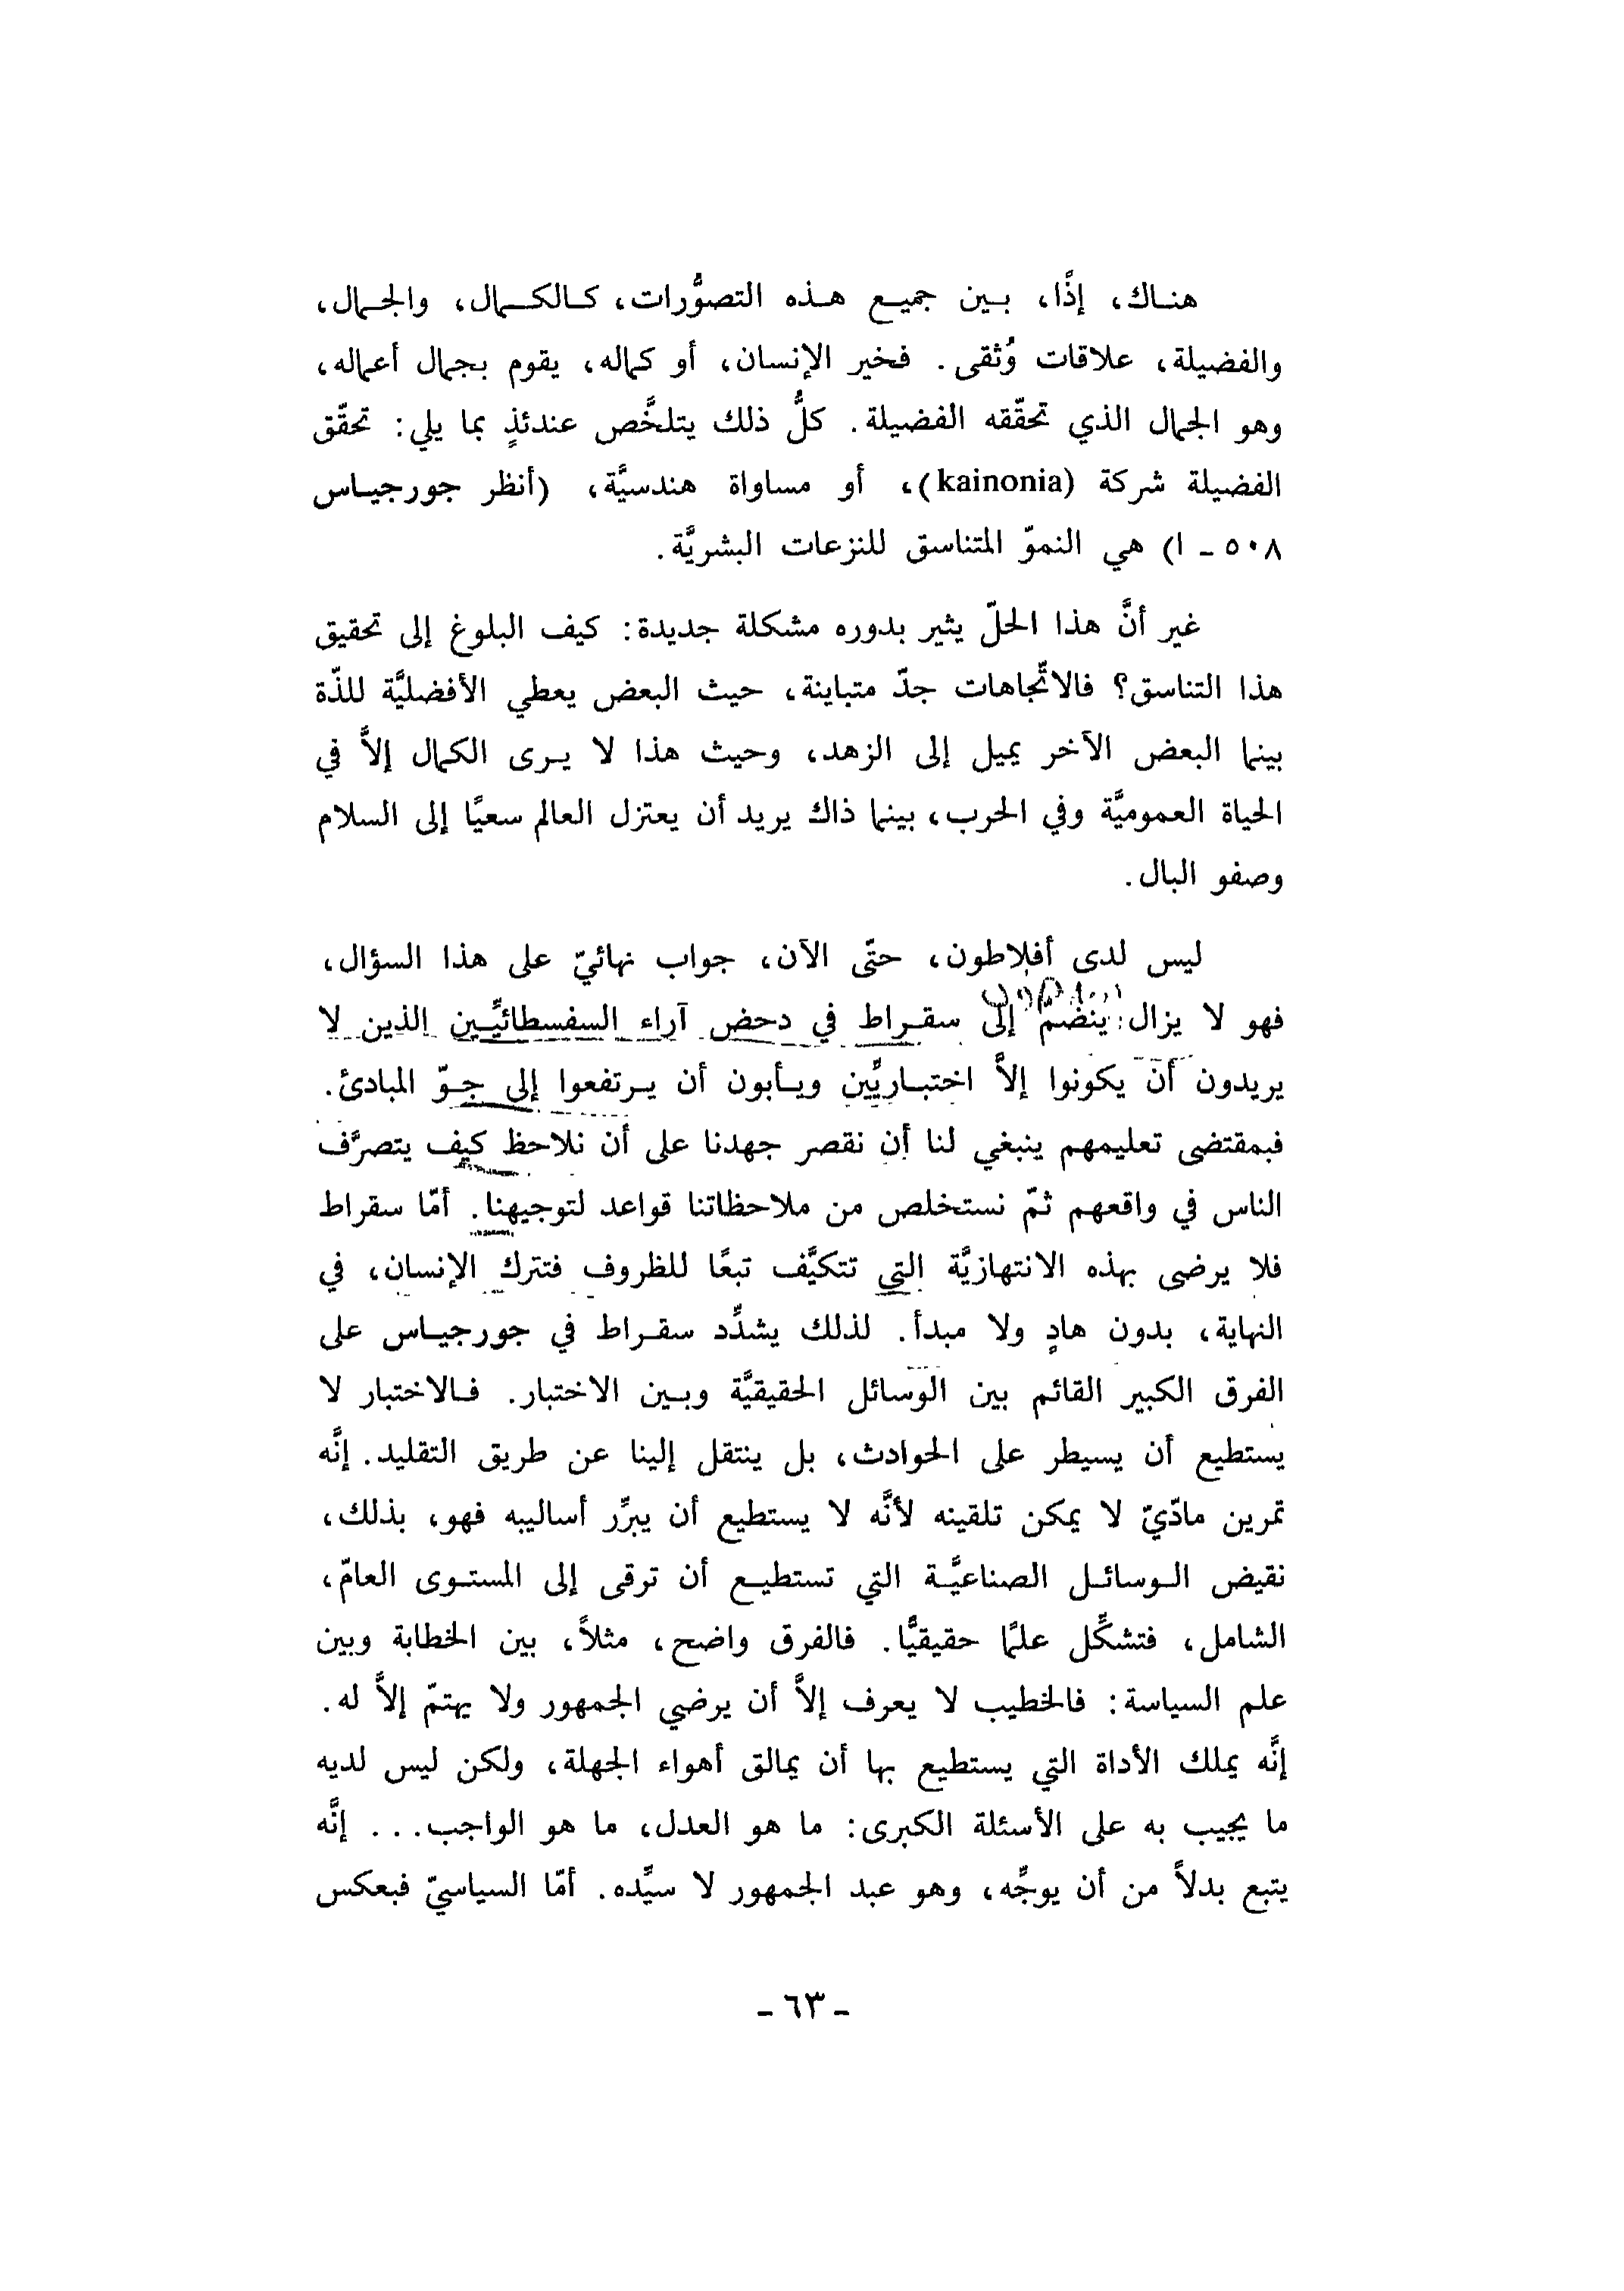 هناك، إذًا، بين جميع هذه التصوُّرات، كالكمال، والجمال،
والفضيلة، علاقات وُثقى. فخير الإنسان، أو كماله، يقوم بجمال أعماله،
وهو الجمال الذي تحقّقه الفضيلة. كلُّ ذلك يتلخَّص عندئذٍ بما يلي: تحقّق
الفضيلة شركة (kainonia)، أو مساواة هندسيَّة، (أنظر جورجياس
٥٠٨ - ا) هي النموّ المتناسق للنزعات البشريَّة.
غير أنَّ هذا الحلّ يثير بدوره مشكلة جديدة: كيف البلوغ إلى تحقيق
هذا التناسق؟ فالاتّجاهات جدّ متباينة، حيث البعض يعطي الأفضليَّة للذّة
بينما البعض الآخر يميل إلى الزهد، وحيث هذا لا يرى الكمال إلاَّ في
الحياة العموميَّة وفي الحرب، بينما ذاك يريد أن يعتزل العالم سعيًا إلى السلام
وصفو البال.
ليس لدى أفلاطون، حتّى الآن، جواب نهائيّ على هذا السؤال،
فهو لا يزال ينضمّ إلى سقراط في دحض آراء السفسطائيِّين الذين لا
يريدون أن يكونوا إلاَّ اختباريِّين ويأبون أن يرتفعوا إلى جوّ المبادئ.
فبمقتضى تعليمهم ينبغي لنا أن نقصر جهدنا على أن نلاحظ كيف يتصرَّف
الناس في واقعهم ثمّ نستخلص من ملاحظاتنا قواعد لتوجيهنا. أمّا سقراط
فلا يرضى بهذه الانتهازيَّة التي تتكيَّف تبعًا للظروف فتترك الإنسان، في
النهاية، بدون هادٍ ولا مبدأ. لذلك يشدِّد سقراط في جورجياس على
الفرق الكبير القائم بين الوسائل الحقيقيَّة وبين الاختبار. فالاختبار لا
يستطيع أن يسيطر على الحوادث، بل ينتقل إلينا عن طريق التقليد. إنَّه
تمرين مادّيّ لا يمكن تلقينه لأنَّه لا يستطيع أن يبرِّر أساليبه فهو، بذلك،
نقيض الوسائل الصناعيَّة التي تستطيع أن ترقى إلى المستوى العامّ،
الشامل، فتشكِّل علمًا حقيقيًّا. فالفرق واضح، مثلاً، بين الخطابة وبين
علم السياسة: فالخطيب لا يعرف إلاَّ أن يرضي الجمهور ولا يهتمّ إلاَّ له.
إنَّه يملك الأداة التي يستطيع بها أن يمالق أهواء الجهلة، ولكن ليس لديه
ما يجيب به على الأسئلة الكبرى: ما هو العدل، ما هو الواجب... إنَّه
يتبع بدلاً من أن يوجِّه، وهو عبد الجمهور لا سيِّده. أمّا السياسيّ فبعكس
- ٦٣ -